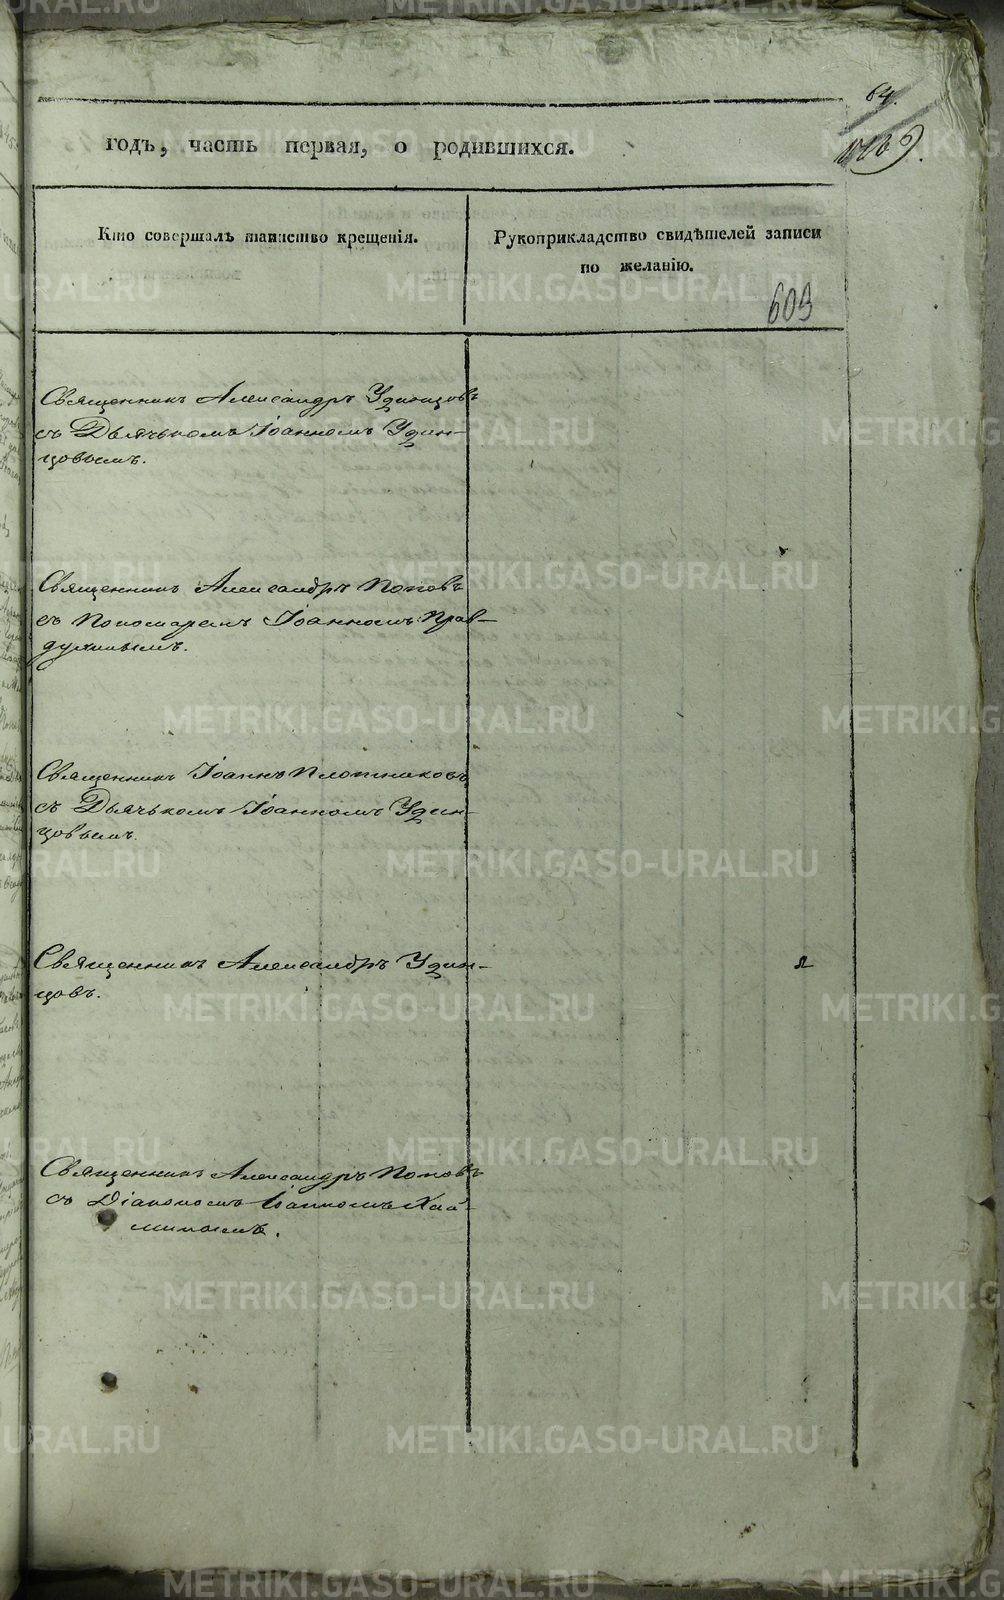 64.
годъ, часть первая, о родившихся.
Кто совершалъ таинство крещенія.
Рукоприкладство свидѣтелей записи
по желанію.
609
Священникъ Александръ Удинцовъ
съ Дьячькомъ Іоанномъ Удин-
цовымъ.
Священникъ Александръ Поповъ
съ Пономаремъ Іоанномъ Прав-
духинымъ.
Священникъ Іоаннъ Плотниковъ
съ Дьячькомъ Іоанномъ Удин-
цовымъ.
Священникъ Александръ Удин-
цовъ.
Священникъ Александръ Поповъ
съ Діакономъ Іоанномъ Хай-
минымъ.
METRIKI.GASO-URAL.RU